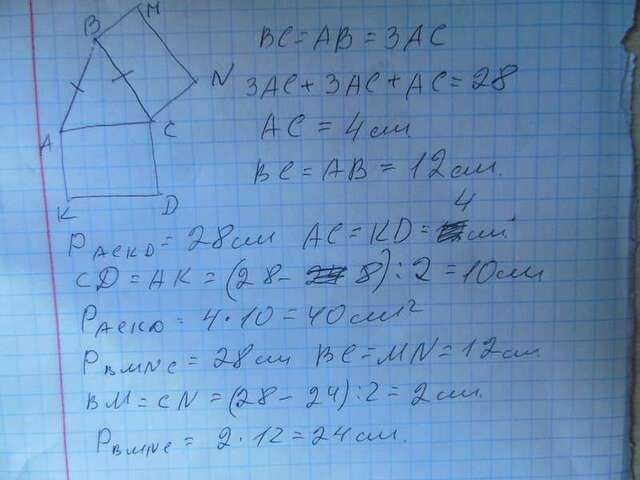 B M
N
A C
K D
BC = AB = 3AC
3AC + 3AC + AC = 28
AC = 4 см
BC = AB = 12 см.
P ACKD = 28 см AC = KD = 4 см
CD = AK = (28 - 8) : 2 = 10 см
P ACKD = 4 · 10 = 40 см²
P BMNC = 28 см BC = MN = 12 см
BM = CN = (28 - 24) : 2 = 2 см.
P BMNC = 2 · 12 = 24 см.